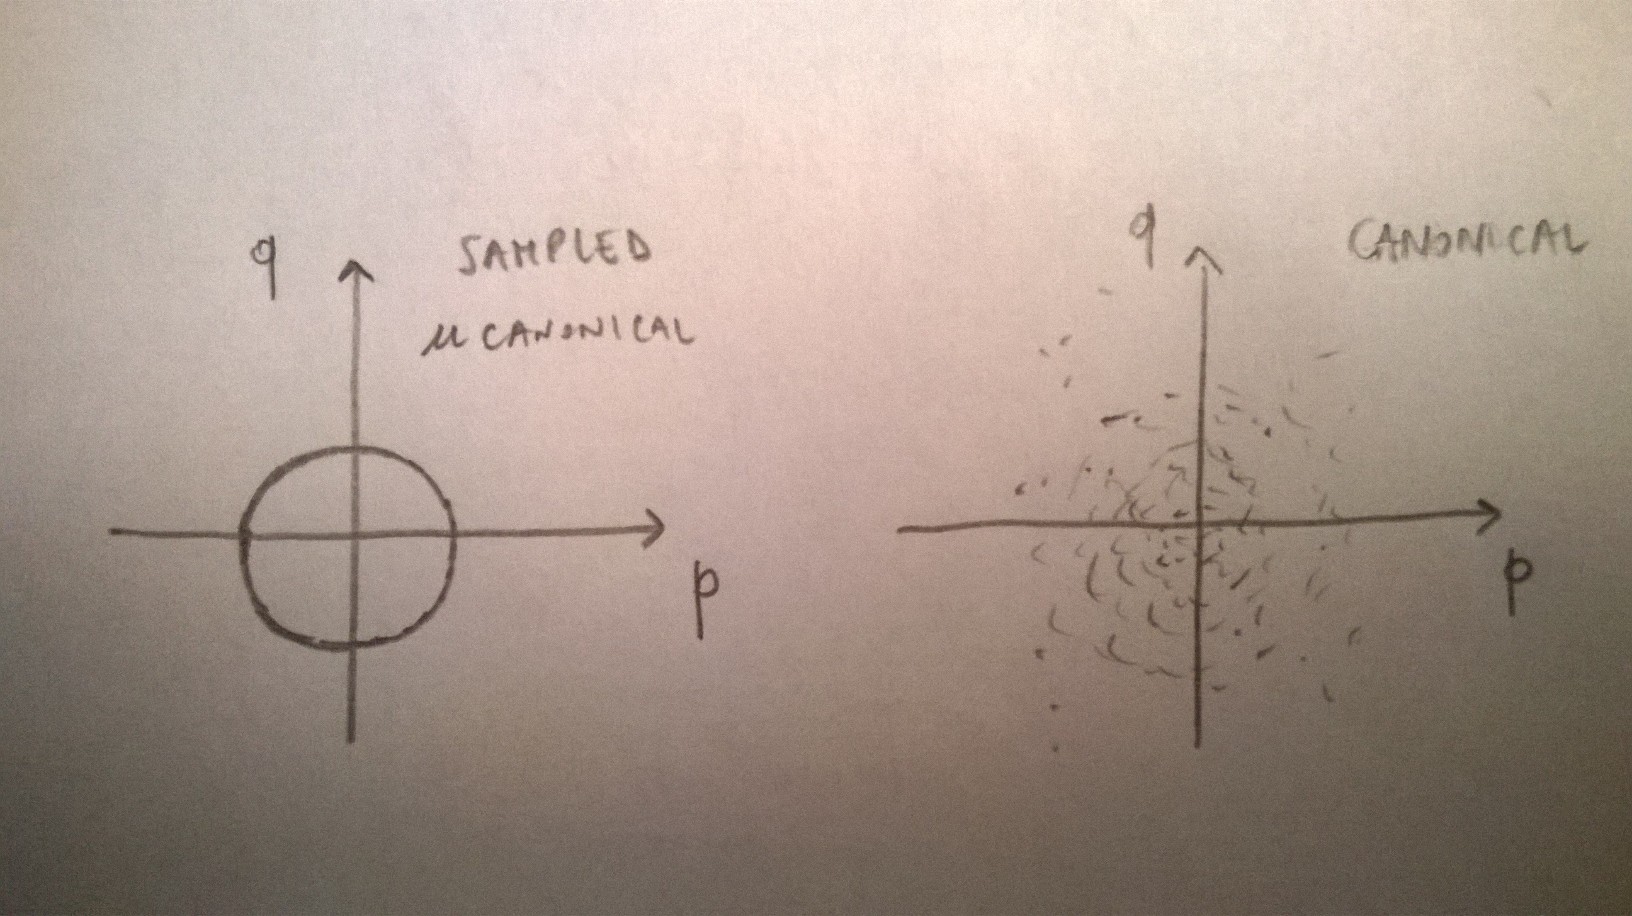 q
SAMPLED
μ CANONICAL
p
q
CANONICAL
p